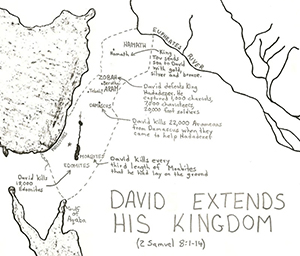 EUPHRATES RIVER
HAMATH
Hamath
King
Tou sends
son to David
with gold,
silver and bronze.
ZOBAH
ARAM
David defeats King
Hadadezer. He
captured 1,000 chariots,
7,000 charioteers,
20,000 foot soldiers
DAMASCUS
David kills 22,000 Arameans
from Damascus when they
came to help Hadadezer
MOABITES
David kills every
third length of Moabites
that he had lay on the ground
EDOMITES
David kills
18,000
Edomites
Gulf
of
Aqaba
DAVID EXTENDS
HIS KINGDOM
(2 Samuel 8:1-14)